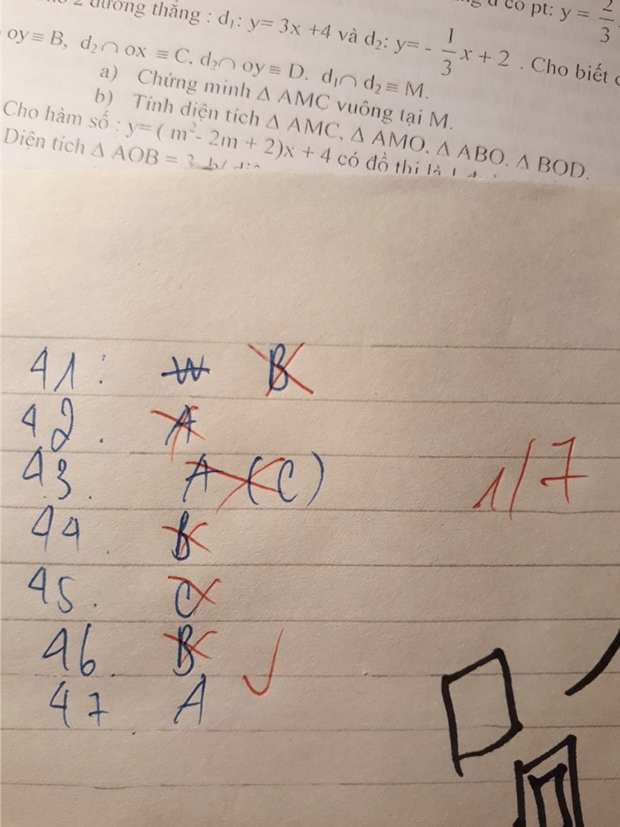 2 đường thẳng : d₁: y= 3x +4 và d₂: y= - 1/3 x + 2 . Cho biết
có pt: y = 2/3
oy ≡ B, d₂∩ ox ≡ C, d₂∩ oy ≡ D. d₁∩ d₂ ≡ M.
a) Chứng minh Δ AMC vuông tại M.
b) Tính diện tích Δ AMC, Δ AMO, Δ ABO, Δ BOD.
Cho hàm số : y= ( m²- 2m + 2)x + 4 có đồ thị là
Diện tích Δ AOB =
41: B
42. A
43. A (C)
1/7
44 B
45. C
46. B
47 A